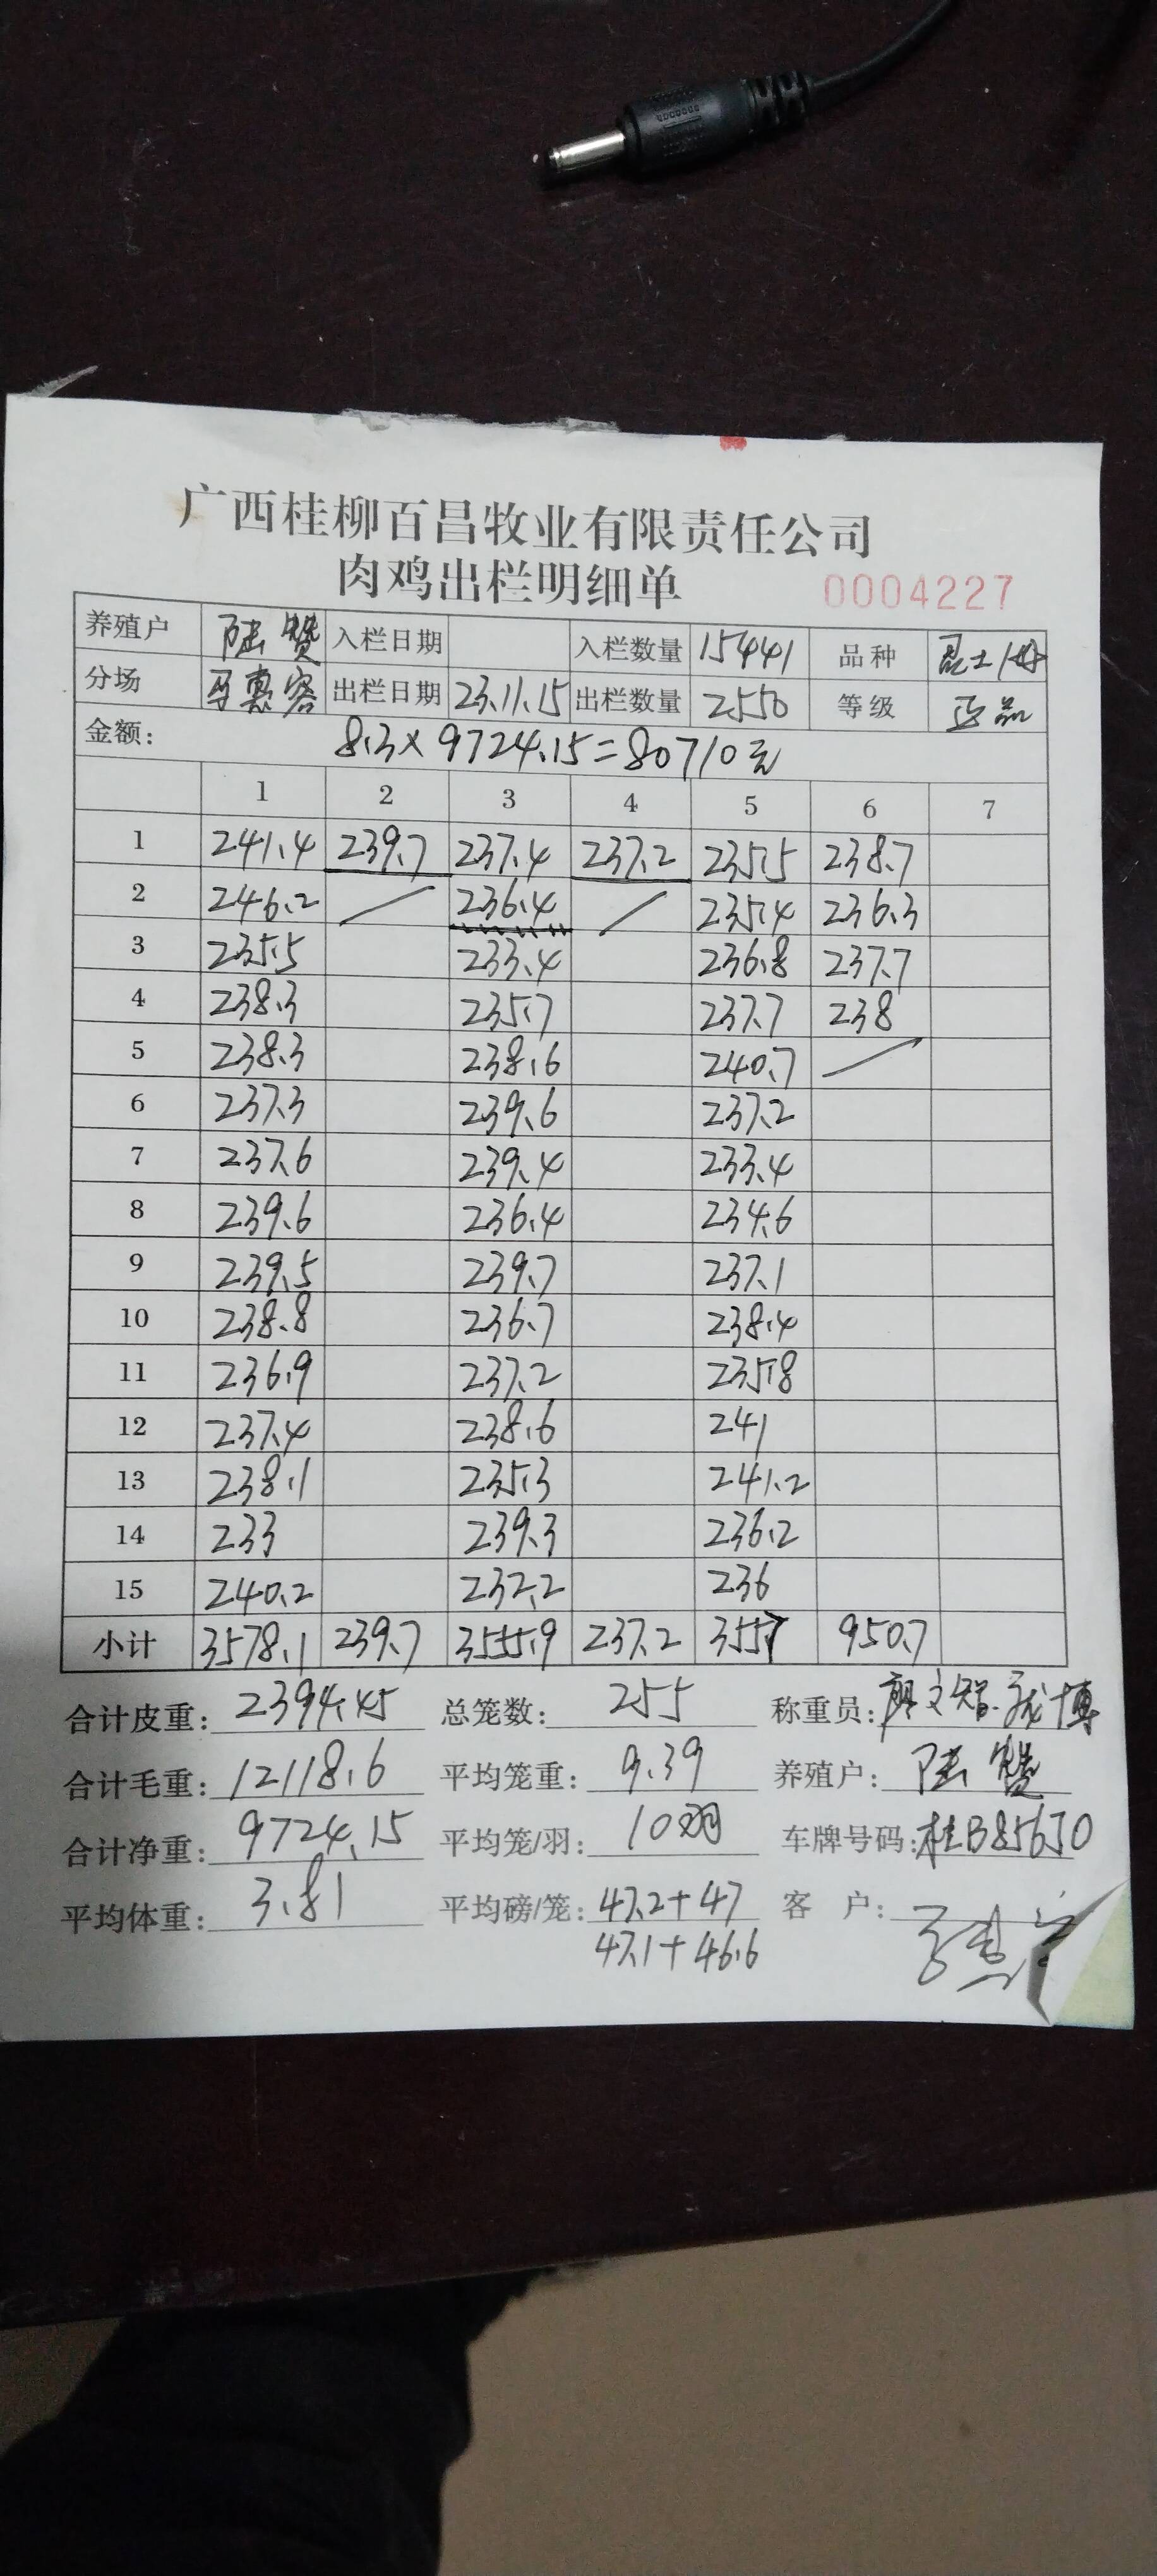 广西桂柳百昌牧业有限责任公司
肉鸡出栏明细单 0004227
养殖户 陆赞 入栏日期 入栏数量 15441 品种
分场 惠容 出栏日期 23.11.15 出栏数量 2550 等级
金额: 8.3×9724.15=80710元
1 2 3 4 5 6 7
1 241.4 239.7 237.4 237.2 235.5 238.7
2 246.2 236.4 235.4 236.3
3 235.5 233.4 236.8 237.7
4 238.3 235.7 237.7 238
5 238.3 238.6 240.7
6 237.3 239.6 237.2
7 237.6 239.4 233.4
8 239.6 236.4 234.6
9 239.5 239.7 237.1
10 238.8 236.7 238.4
11 236.9 237.2 235.8
12 237.4 238.6 241
13 238.1 235.3 241.2
14 233 239.3 236.2
15 240.2 232.2 236
小计 3578.1 239.7 3555.9 237.2 3557 950.7
合计皮重: 2394.45 总笼数: 255 称重员:
合计毛重: 12118.6 平均笼重: 9.39 养殖户: 陆赞
合计净重: 9724.15 平均笼/羽: 10羽 车牌号码: 桂B85650
平均体重: 3.81 平均磅/笼: 47.2+47 客 户:
47.1+46.6